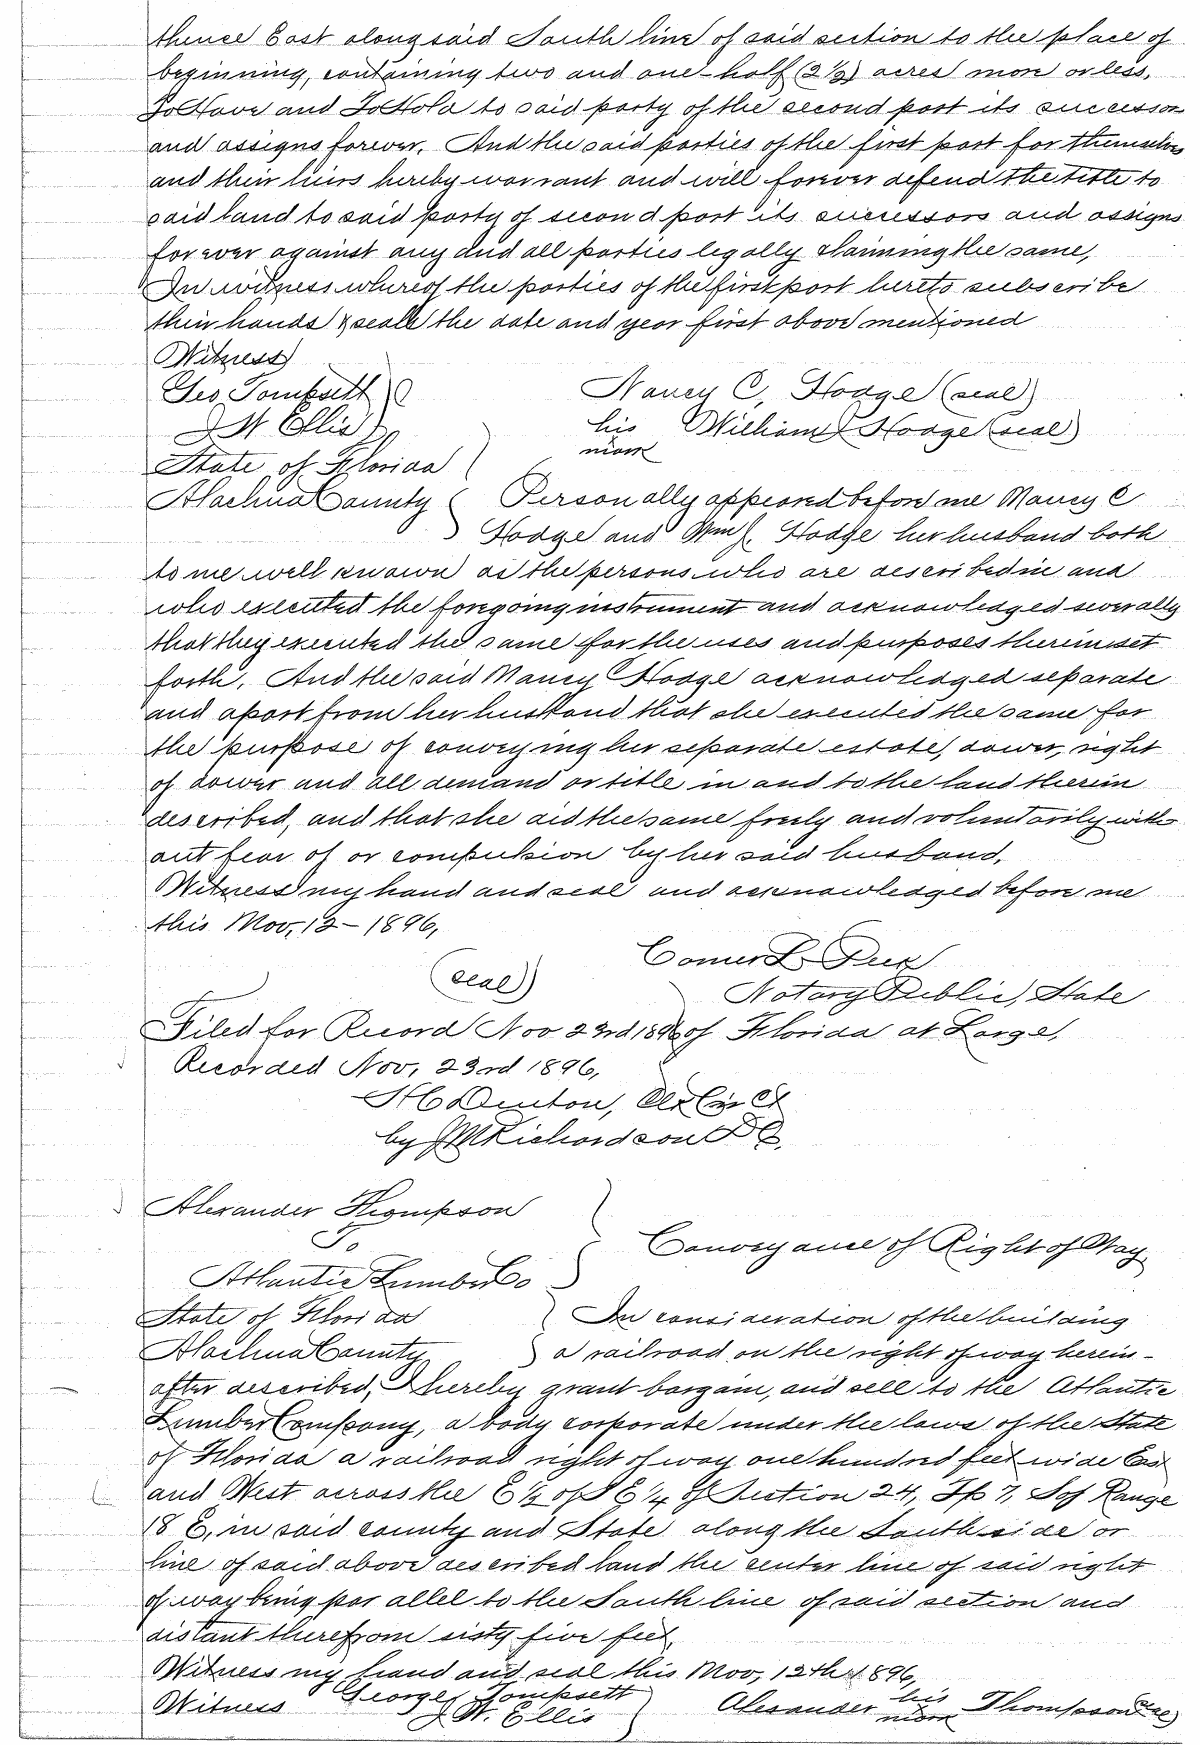 thence East along said South line of said section to the place of
beginning, containing two and one-half (2 1/2) acres more or less,
To Have and To Hold to said party of the second part its successors
and assigns forever. And the said parties of the first part for themselves
and their heirs hereby warrant and will forever defend the title to
said land to said party of second part its successors and assigns
forever against any and all parties legally claiming the same,
In witness whereof the parties of the first part hereto subscribe
their hands & seals the date and year first above mentioned
Witness
Geo Tompsett
J W Ellis
Nancy C, Hodge (seal)
his William Hodge (seal)
mark
State of Florida
Alachua County Personally appeared before me Nancy C
Hodge and Wm J. Hodge her husband both
to me well known as the persons who are described in and
who executed the foregoing instrument and acknowledged severally
that they executed the same for the uses and purposes therein set
forth. And the said Nancy C Hodge acknowledged separate
and apart from her husband that she executed the same for
the purpose of conveying her separate estate, dower, right
of dower and all demand or title in and to the land therein
described, and that she did the same freely and voluntarily with
out fear of or compulsion by her said husband.
Witness my hand and seal and acknowledged before me
this Nov, 12 - 1896,
Comer L. Peek
(seal) Notary Public, State
Filed for Record Nov 23rd 1896 of Florida at Large,
Recorded Nov, 23rd 1896,
H C Denton, Clk Cir Ct
by J M Richardson D C.
Alexander Thompson
To
Conveyance of Right of Way
Atlantic Lumber Co
State of Florida In consideration of the building
Alachua County a railroad on the right of way herein-
after described, I hereby grant bargain, and sell to the Atlantic
Lumber Company, a body corporate under the laws of the State
of Florida a railroad right of way one hundred feet wide East
and West across the E 1/2 of S E 1/4 of Section 24, Tp 7, S of Range
18 E, in said county and State along the South side or
line of said above described land the center line of said right
of way being par allel to the South line of said section and
distant therefrom sixty five feet,
Witness my hand and seal this Nov, 12th 1896,
Witness George Tompsett
J. W. Ellis
Alexander his Thompson (seal)
mark